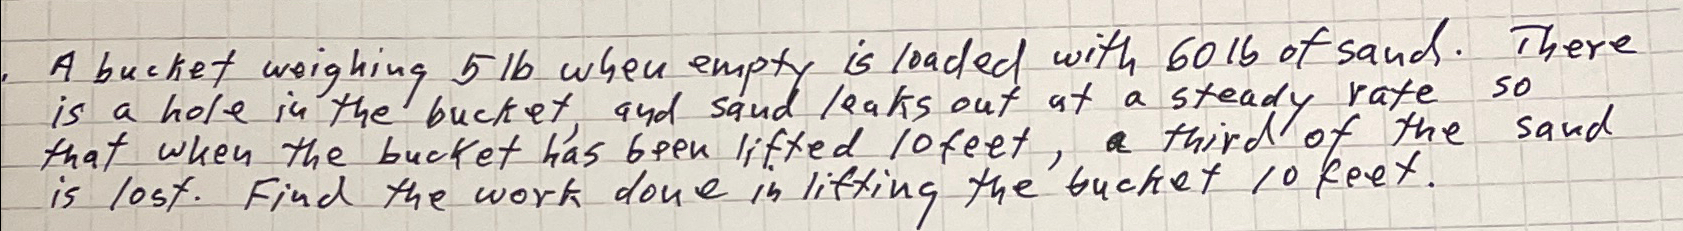 A bucket weighing 5 lb when empty is loaded with 60 lb of sand. There
is a hole in the bucket, and sand leaks out at a steady rate so
that when the bucket has been lifted 10 feet, a third of the sand
is lost. Find the work done in lifting the bucket 10 feet.